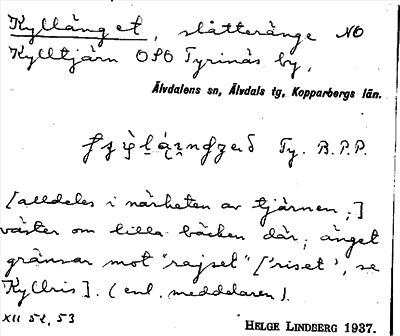 Kyllänget, slåtteränge NO
Kylltjärn OSO Tyrinäs by,
Älvdalens sn, Älvdals tg, Kopparbergs län.
Ty. B.P.P.
[alldeles i närheten av tjärnen;]
väster om lilla bäcken där; änget
gränsar mot "rajset" ['riset', se
Kyllris]. (enl. meddelaren).
XII 52, 53
HELGE LINDBERG 1937.